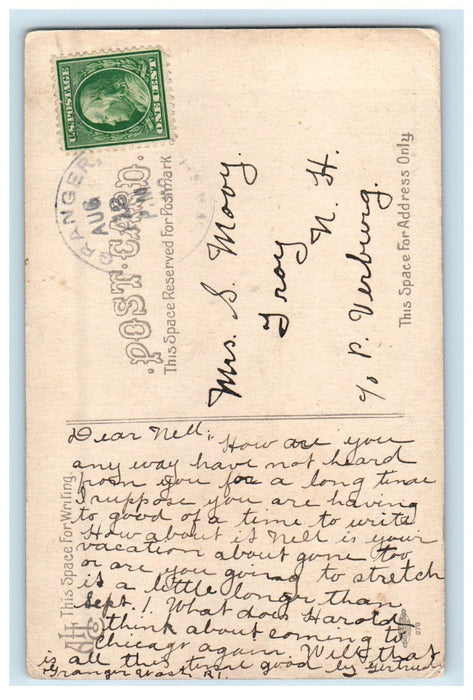 U.S. POSTAGE
ONE CENT
GRANGER,
AUG
18
WASH
POST CARD.
This Space Reserved For Postmark
Mrs. S. Moovy.
Troy
N. H.
c/o P. Verburg.
This Space For Address Only
This Space For Writing
Dear Nell,
How are you
any way have not heard
from you for a long time
I suppose you are having
to good of a time to write
How about it Nell is your
vacation about gone too
or are you going to stretch
it a little longer than
Sept. 1. What does Harold
think about coming to
Chicago again. Well that
is all this time good by Gertrude
Granger Wash. R1.